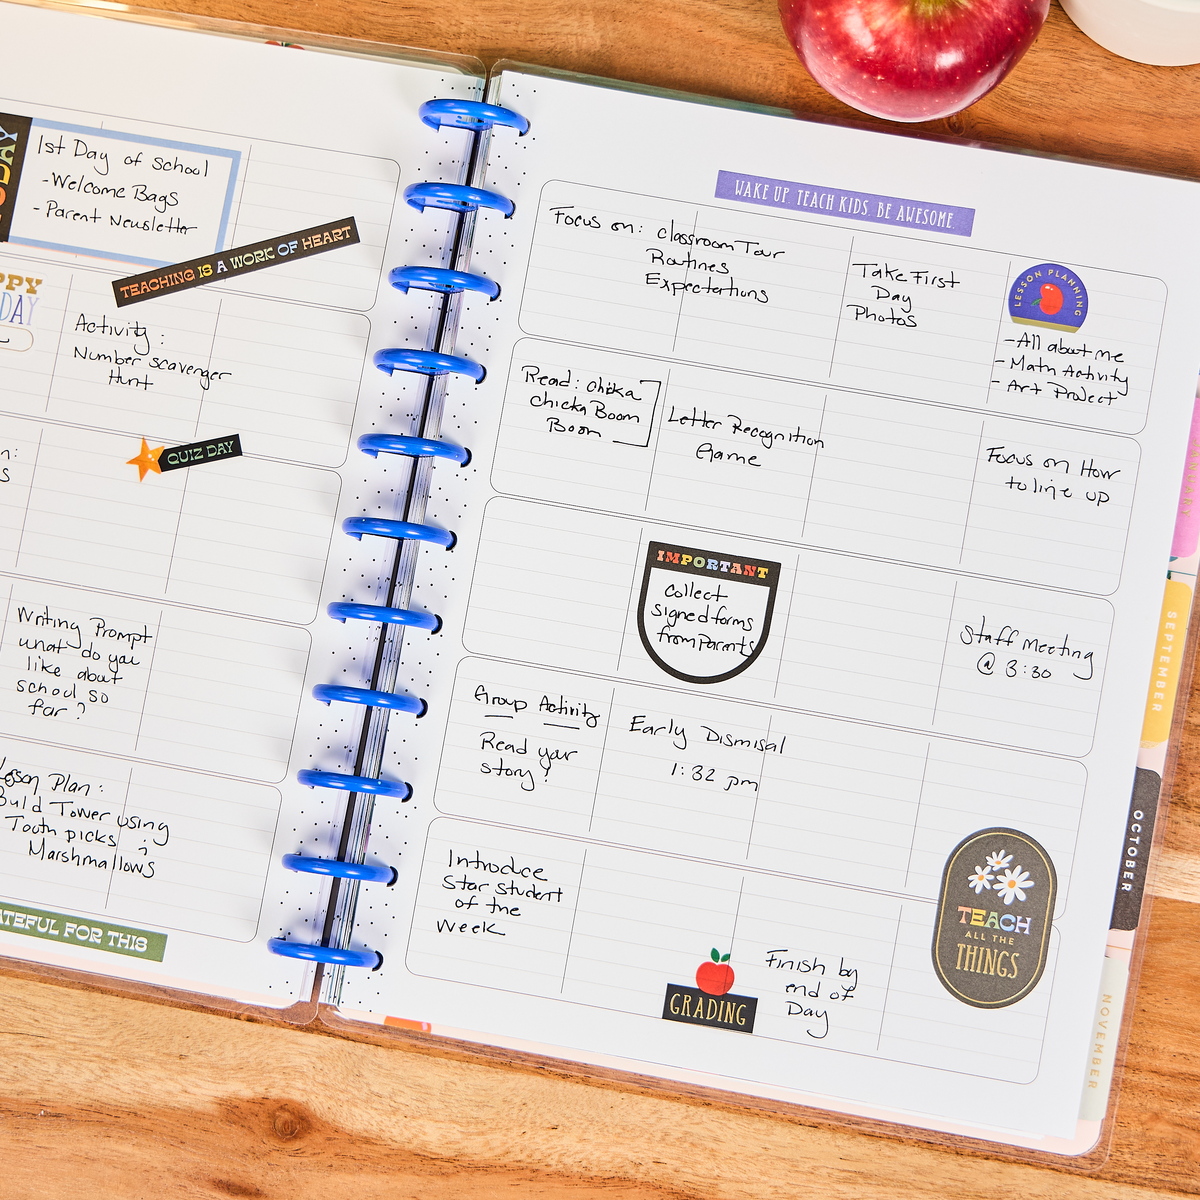 1st Day of School
-Welcome Bags
- Parent Newsletter
TEACHING IS A WORK OF HEART
Activity:
Number scavenger
Hunt
QUIZ DAY
Writing Prompt
what do you
like about
school so
far?
Plan:
Tower using
Tooth picks &
Marshmallows
FOR THIS
WAKE UP. TEACH KIDS. BE AWESOME.
Focus on: classroom Tour
Routines
Expectations
Take First
Day
Photos
LESSON PLANNING
-All about me
- Math Activity
- Art Project
Read: chicka
chicka Boom
Boom
Letter Recognition
Game
Focus on How
to line up
IMPORTANT
collect
signed forms
from Parents
Staff meeting
@ 3:30
Group Activity
Read your
story!
Early Dismisal
1:32 pm
Introduce
Star Student
of the
Week
GRADING
Finish by
end of
Day
TEACH
ALL THE
THINGS
SEPTEMBER
OCTOBER
NOVEMBER